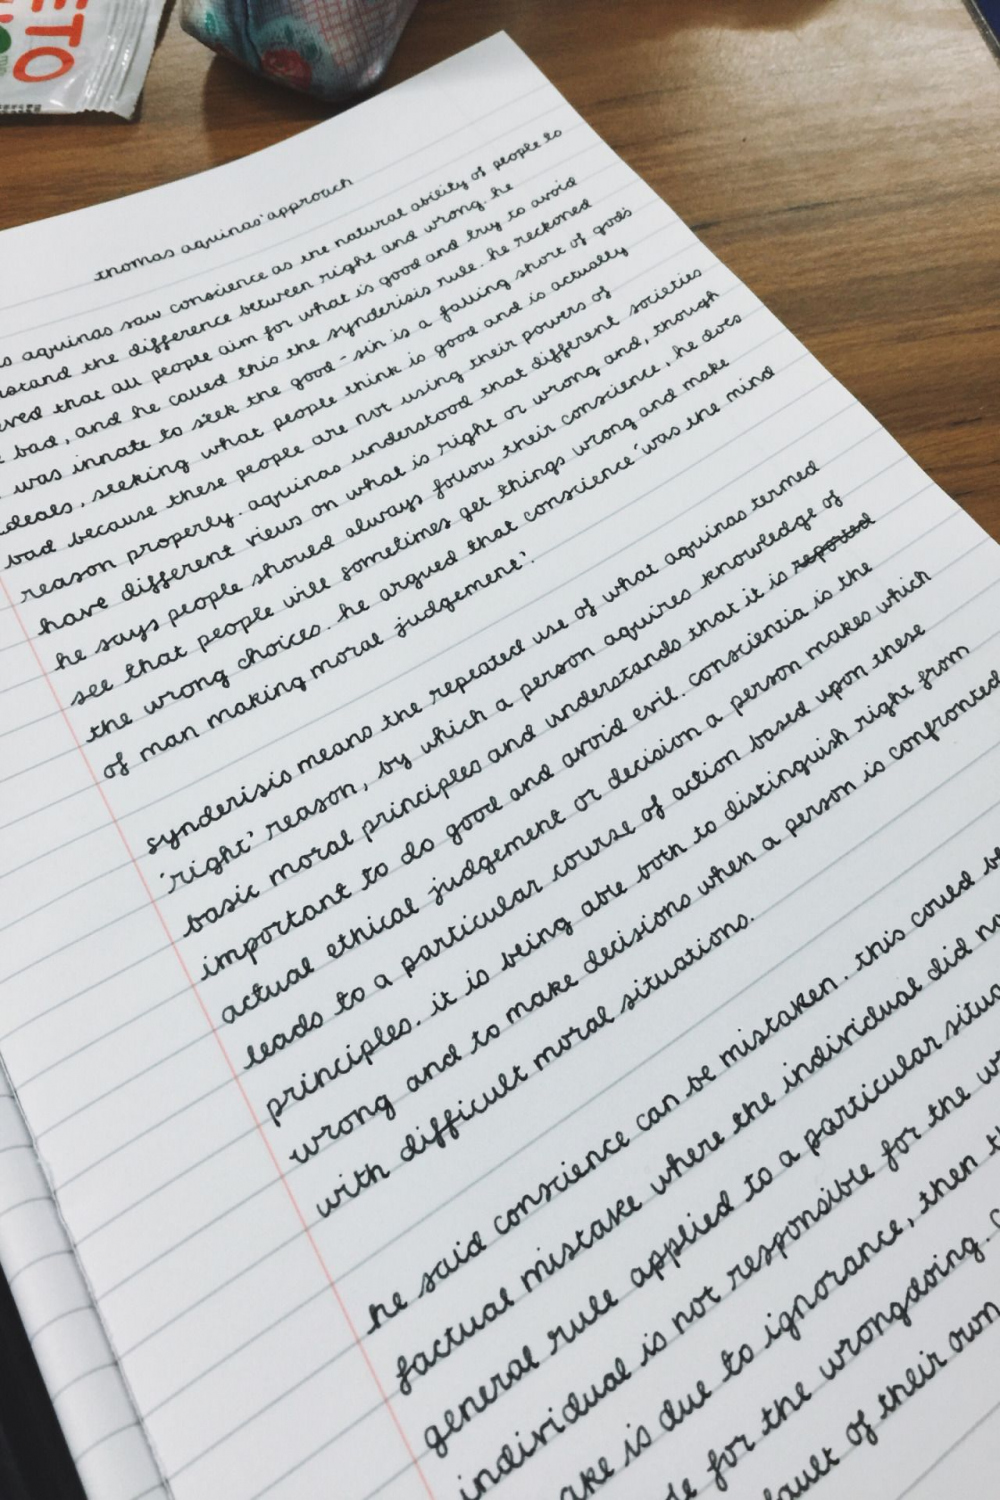 ETO
thomas aquinas' approach
aquinas saw conscience as the natural ability of people to
the difference between right and wrong. he
that all people aim for what is good and try to avoid
bad, and he called this the synderisis rule. he reckoned
was innate to seek the good - sin is a falling short of gods
ideals, seeking what people think is good and is actually
bad because these people are not using their powers of
reason properly. aquinas understood that different societies
have different views on what is right or wrong and, though
he says people should always follow their conscience, he does
see that people will sometimes get things wrong and make
the wrong choices. he argued that conscience 'was the mind
of man making moral judgement'.
synderisis means the repeated use of what aquinas termed
'right' reason, by which a person aquires knowledge of
basic moral principles and understands that it is reported
important to do good and avoid evil. conscientia is the
actual ethical judgement or decision a person makes which
leads to a particular course of action based upon these
principles. it is being able both to distinguish right from
wrong and to make decisions when a person is confronted
with difficult moral situations.
he said conscience can be mistaken. this could be
factual mistake where the individual did
general rule applied to a particular
individual is not responsible for the
is due to ignorance, then
for the wrongdoing.
of their own